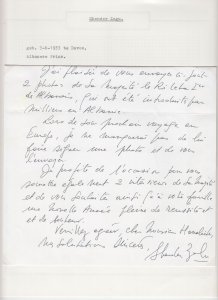 Skender Zogu.
geb. 3-4-1933 te Davos,
Albanese Prins.
J'ai plaisir de vous envoyer ci-joint
2 photos de Sa Majesté le Roi Leka Ier
de l'Albanie, qui ont été introduits par
milliers en Albanie.
Lors de son prochain voyage en
Europe, je ne manquerai pas de lui
faire signer une photo et de vous
l'envoyer.
Je profite de l'occasion pour vous
remettre également 2 interviews de Sa Majesté
et de vous souhaiter ainsi qu'à votre famille
une Nouvelle Année pleine de réussite et
de bonheur.
Veuillez agréer, cher Monsieur
mes salutations sincères.